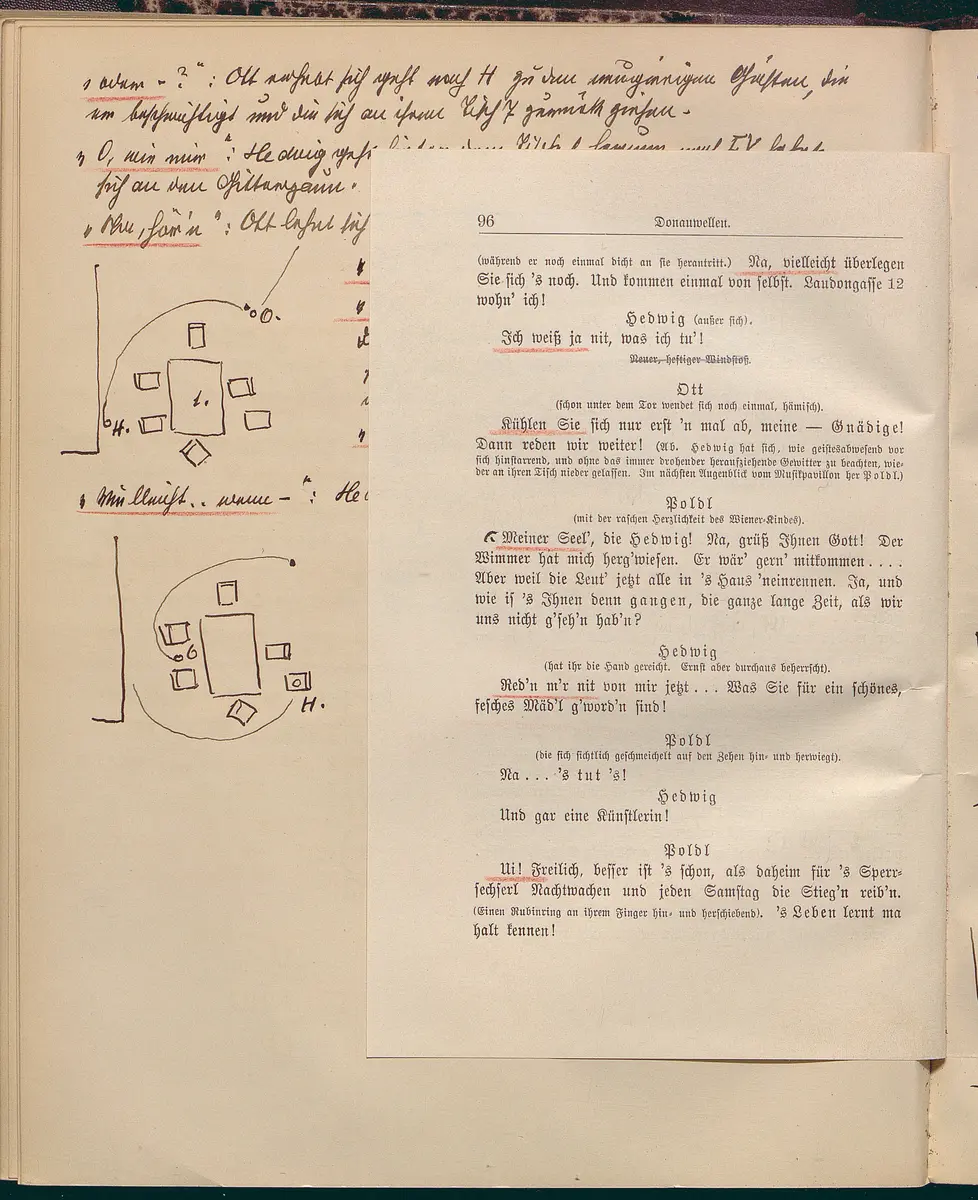 „oder – ?“ : Ott erhebt sich geht nach H zu den neugierigen Gästen, die
er beschwichtigt und die sich an ihren Tisch 7 zurück ziehen.
„O, wie mir“ : Hedwig geht
sich an den Gitterzaun.
„Na, hör'n“ : Ott lehnt sich
O.
1.
H.
„Vielleicht.. wenn –“ : He
H.
96 Donauwellen.
(während er noch einmal dicht an sie herantritt.) Na, vielleicht überlegen
Sie sich 's noch. Und kommen einmal von selbst. Laudongasse 12
wohn' ich!
Hedwig (außer sich).
Ich weiß ja nit, was ich tu'!
Neuer, heftiger Windstoß.
Ott
(schon unter dem Tor wendet sich noch einmal, hämisch).
Kühlen Sie sich nur erst 'n mal ab, meine — Gnädige!
Dann reden wir weiter! (Ab. Hedwig hat sich, wie geistesabwesend vor
sich hinstarrend, und ohne das immer drohender heraufziehende Gewitter zu beachten, wie-
der an ihren Tisch nieder gelassen. Im nächsten Augenblick vom Musikpavillon her Poldl.)
Poldl
(mit der raschen Herzlichkeit des Wiener-Kindes).
Meiner Seel', die Hedwig! Na, grüß Ihnen Gott! Der
Wimmer hat mich herg'wiesen. Er wär' gern' mitkommen . . . .
Aber weil die Leut' jetzt alle in 's Haus 'neinrennen. Ja, und
wie is 's Ihnen denn gangen, die ganze lange Zeit, als wir
uns nicht g'seh'n hab'n?
Hedwig
(hat ihr die Hand gereicht. Ernst aber durchaus beherrscht).
Red'n m'r nit von mir jetzt . . . Was Sie für ein schönes,
fesches Mäd'l g'word'n sind!
Poldl
(die sich sichtlich geschmeichelt auf den Zehen hin- und herwiegt).
Na . . . 's tut 's!
Hedwig
Und gar eine Künstlerin!
Poldl
Ui! Freilich, besser ist 's schon, als daheim für 's Sperr-
sechserl Nachtwachen und jeden Samstag die Stieg'n reib'n.
(Einen Rubinring an ihrem Finger hin- und herschiebend). 's Leben lernt ma
halt kennen!